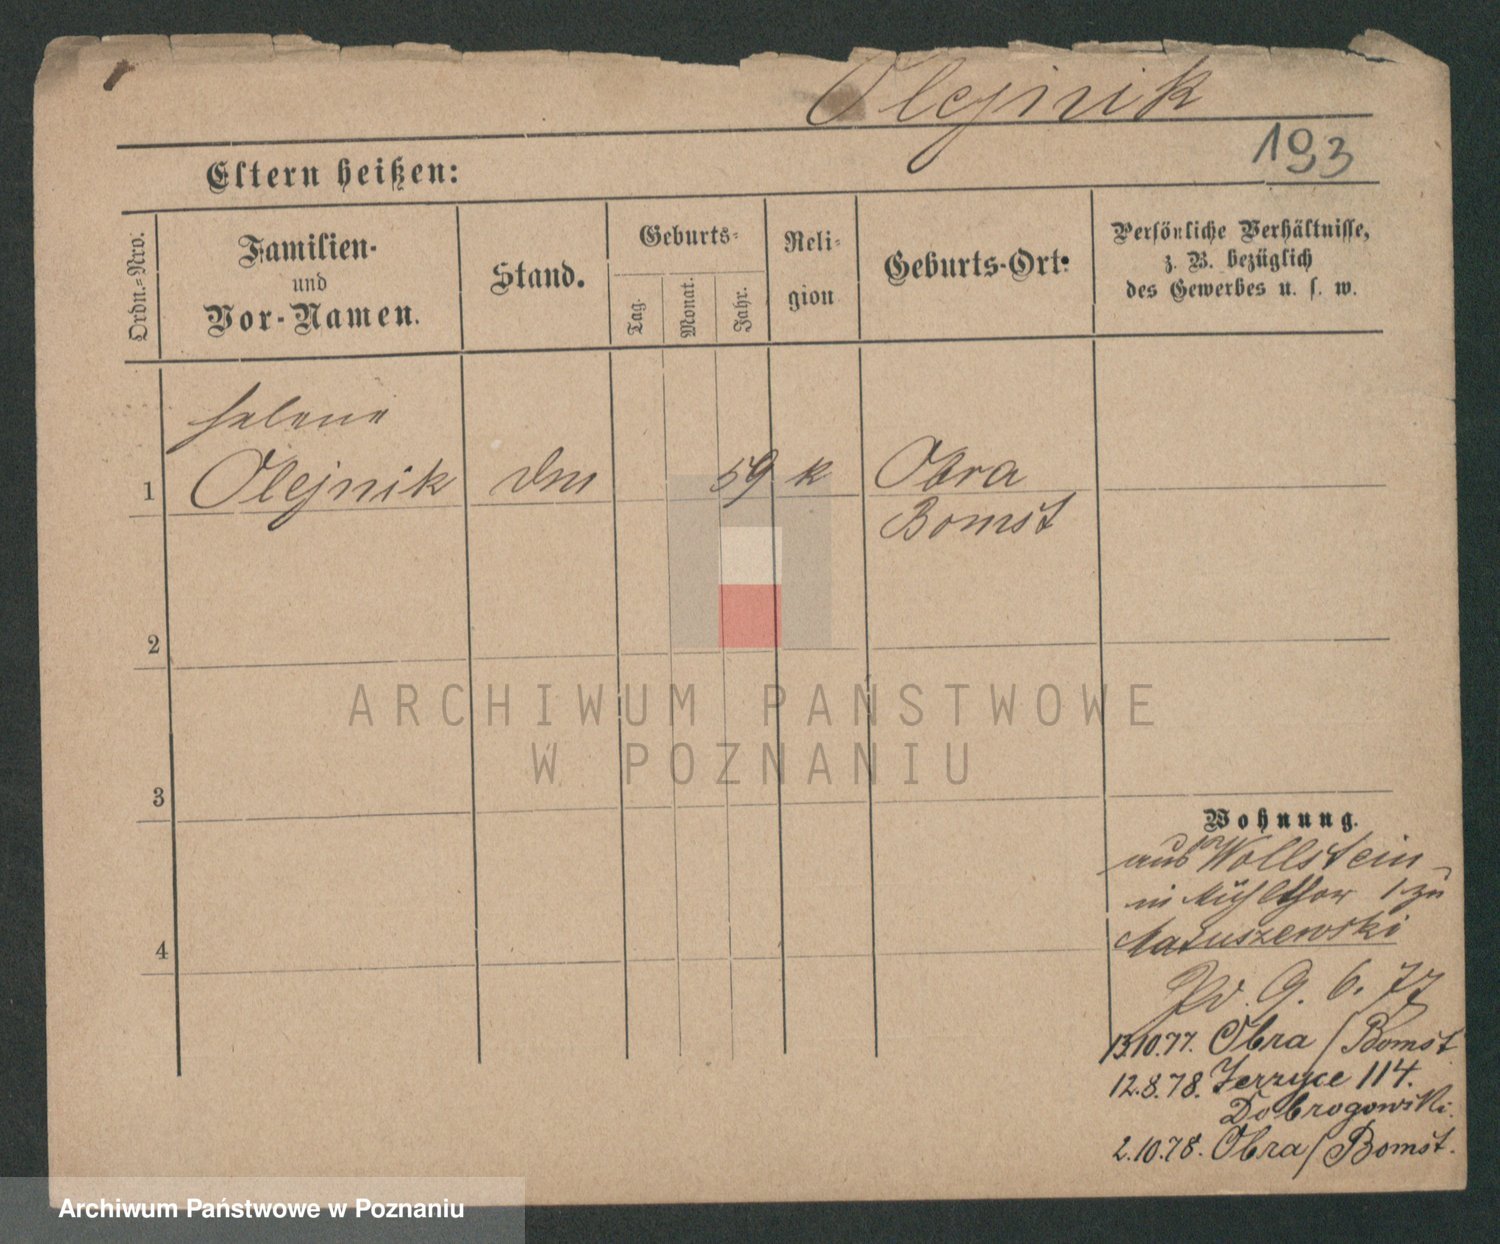 Olejnik
193
Eltern heißen:
Ordn.-Nro.
Familien-
und
Vor-Namen.
Stand.
Geburts-
Tag.
Monat.
Jahr.
Reli-
gion
Geburts-Ort:
Persönliche Verhältnisse,
z. B. bezüglich
des Gewerbes u. s. w.
Helene
1 Olejnik 59 k Obra
Bomst
2
3
4
ARCHIWUM PAŃSTWOWE
W POZNANIU
Wohnung.
aus Wollstein
Mühlthor 1 zu
Matuszewski
9. 6. 77
13.10.77. Obra / Bomst
12.8.78. Jerzyce 114.
Dobrogowski.
2.10.78. Obra / Bomst.
Archiwum Państwowe w Poznaniu